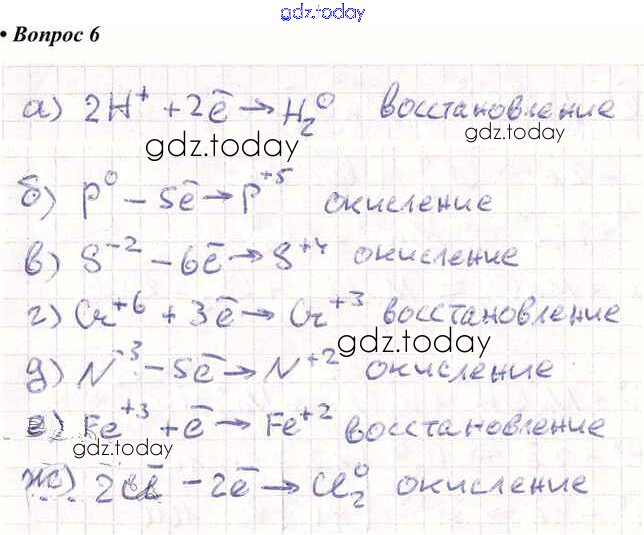 gdz.today
• Вопрос 6
а) 2H⁺ + 2ē → H₂⁰ восстановление
gdz.today
gdz.today
б) P⁰ − 5ē → P⁺⁵ окисление
в) S⁻² − 6ē → S⁺⁴ окисление
г) Cr⁺⁶ + 3ē → Cr⁺³ восстановление
gdz.today
д) N⁻³ − 5ē → N⁺² окисление
е) Fe⁺³ + ē → Fe⁺² восстановление
gdz.today
ж) 2Cl⁻ − 2ē → Cl₂⁰ окисление